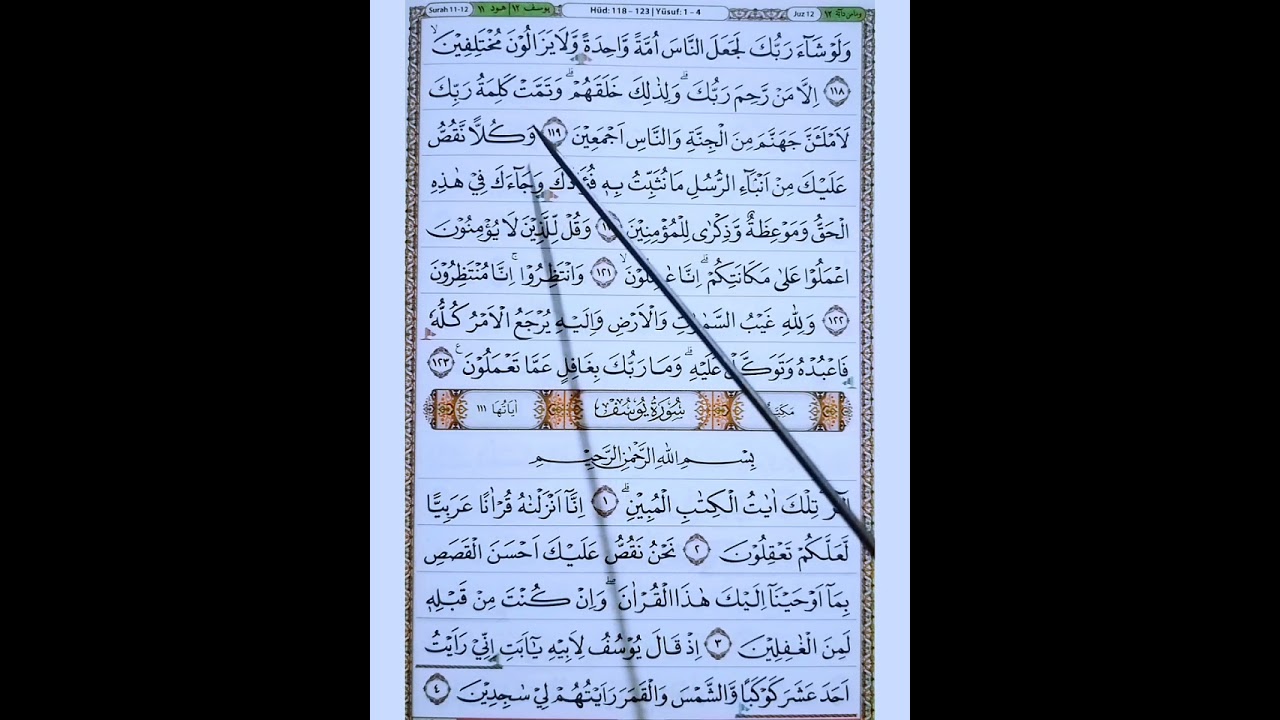 Surah 11-12 يوسف ١٢ | هود ١١ Hūd: 118 – 123 | Yūsuf: 1 – 4 Juz 12 ١٢
وَلَوْ شَاۤءَ رَبُّكَ لَجَعَلَ النَّاسَ اُمَّةً وَّاحِدَةً وَّلَا يَزَالُوْنَ مُخْتَلِفِيْنَۙ
١١٨ اِلَّا مَنْ رَّحِمَ رَبُّكَ ۗوَلِذٰلِكَ خَلَقَهُمْ ۗوَتَمَّتْ كَلِمَةُ رَبِّكَ
لَاَمْلَـَٔنَّ جَهَنَّمَ مِنَ الْجِنَّةِ وَالنَّاسِ اَجْمَعِيْنَ ١١٩ وَكُلًّا نَّقُصُّ
عَلَيْكَ مِنْ اَنْۢبَاۤءِ الرُّسُلِ مَا نُثَبِّتُ بِهٖ فُؤَادَكَ وَجَاۤءَكَ فِيْ هٰذِهِ
الْحَقُّ وَمَوْعِظَةٌ وَّذِكْرٰى لِلْمُؤْمِنِيْنَ وَقُلْ لِّلَّذِيْنَ لَا يُؤْمِنُوْنَ
اعْمَلُوْا عَلٰى مَكَانَتِكُمْ ۗاِنَّا عٰمِلُوْنَۙ ١٢١ وَانْتَظِرُوْاۚ اِنَّا مُنْتَظِرُوْنَ
١٢٢ وَلِلّٰهِ غَيْبُ السَّمٰوٰتِ وَالْاَرْضِ وَاِلَيْهِ يُرْجَعُ الْاَمْرُ كُلُّهٗ
فَاعْبُدْهُ وَتَوَكَّلْ عَلَيْهِ ۗوَمَا رَبُّكَ بِغَافِلٍ عَمَّا تَعْمَلُوْنَ ࣖ ١٢٣
مَكِيَّةٌ سُوْرَةُ يُوْسُفَ اٰيَاتُهَا ١١١
بِسْمِ اللّٰهِ الرَّحْمٰنِ الرَّحِيْمِ
الۤرٰ ۗ تِلْكَ اٰيٰتُ الْكِتٰبِ الْمُبِيْنِۗ ١ اِنَّآ اَنْزَلْنٰهُ قُرْاٰنًا عَرَبِيًّا
لَّعَلَّكُمْ تَعْقِلُوْنَ ٢ نَحْنُ نَقُصُّ عَلَيْكَ اَحْسَنَ الْقَصَصِ
بِمَآ اَوْحَيْنَآ اِلَيْكَ هٰذَا الْقُرْاٰنَۖ وَاِنْ كُنْتَ مِنْ قَبْلِهٖ
لَمِنَ الْغٰفِلِيْنَ ٣ اِذْ قَالَ يُوْسُفُ لِاَبِيْهِ يٰٓاَبَتِ اِنِّيْ رَاَيْتُ
اَحَدَ عَشَرَ كَوْكَبًا وَّالشَّمْسَ وَالْقَمَرَ رَاَيْتُهُمْ لِيْ سٰجِدِيْنَ ٤